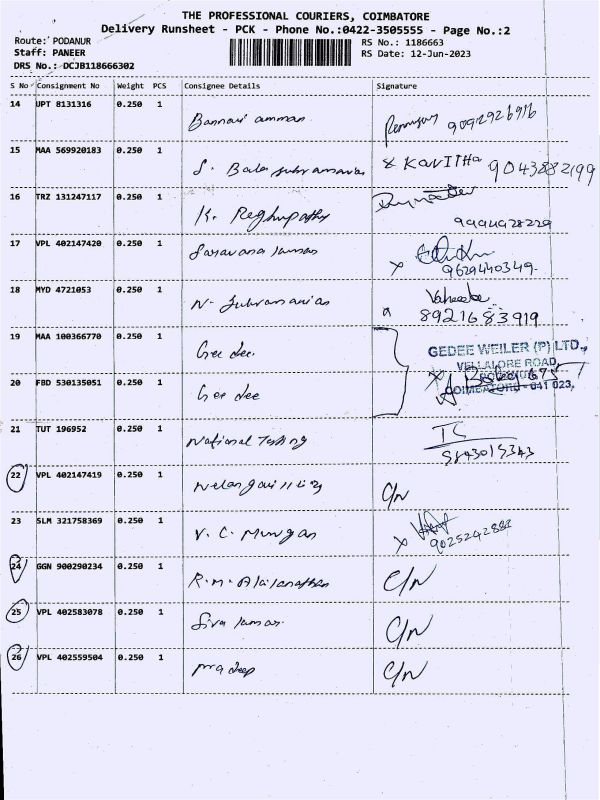 THE PROFESSIONAL COURIERS, COIMBATORE
Delivery Runsheet - PCK - Phone No.:0422-3505555 - Page No.:2
Route: PODANUR RS No.: 1186663
Staff: PANEER RS Date: 12-Jun-2023
DRS No.: DCJB118666302
S No Consignment No Weight PCS Consignee Details Signature
14 UPT 8131316 0.250 1 Bannari amman 9092926916
15 MAA 569920183 0.250 1 S. Balasubramanian & KAVITHA 9043882199
16 TRZ 131247117 0.250 1 K. Reghupathy 9994928229
17 VPL 402147420 0.250 1 Saravana kumar x 9629440349
18 MYD 4721053 0.250 1 N. Subramanian Vaheeda 8921683919
19 MAA 100366770 0.250 1 Gee dee
GEDEE WEILER (P) LTD.,
VELLALORE ROAD,
20 FBD 530135051 0.250 1 Gee dee
COIMBATORE - 641 023,
21 TUT 196952 0.250 1 National Testing TC
22 VPL 402147419 0.250 1 C/N
23 SLM 321758369 0.250 1 V. C. Murugan x 9025242882
24 GGN 900290234 0.250 1 R.M. C/N
25 VPL 402583078 0.250 1 Siva kumar C/N
26 VPL 402559504 0.250 1 Pradeep C/N